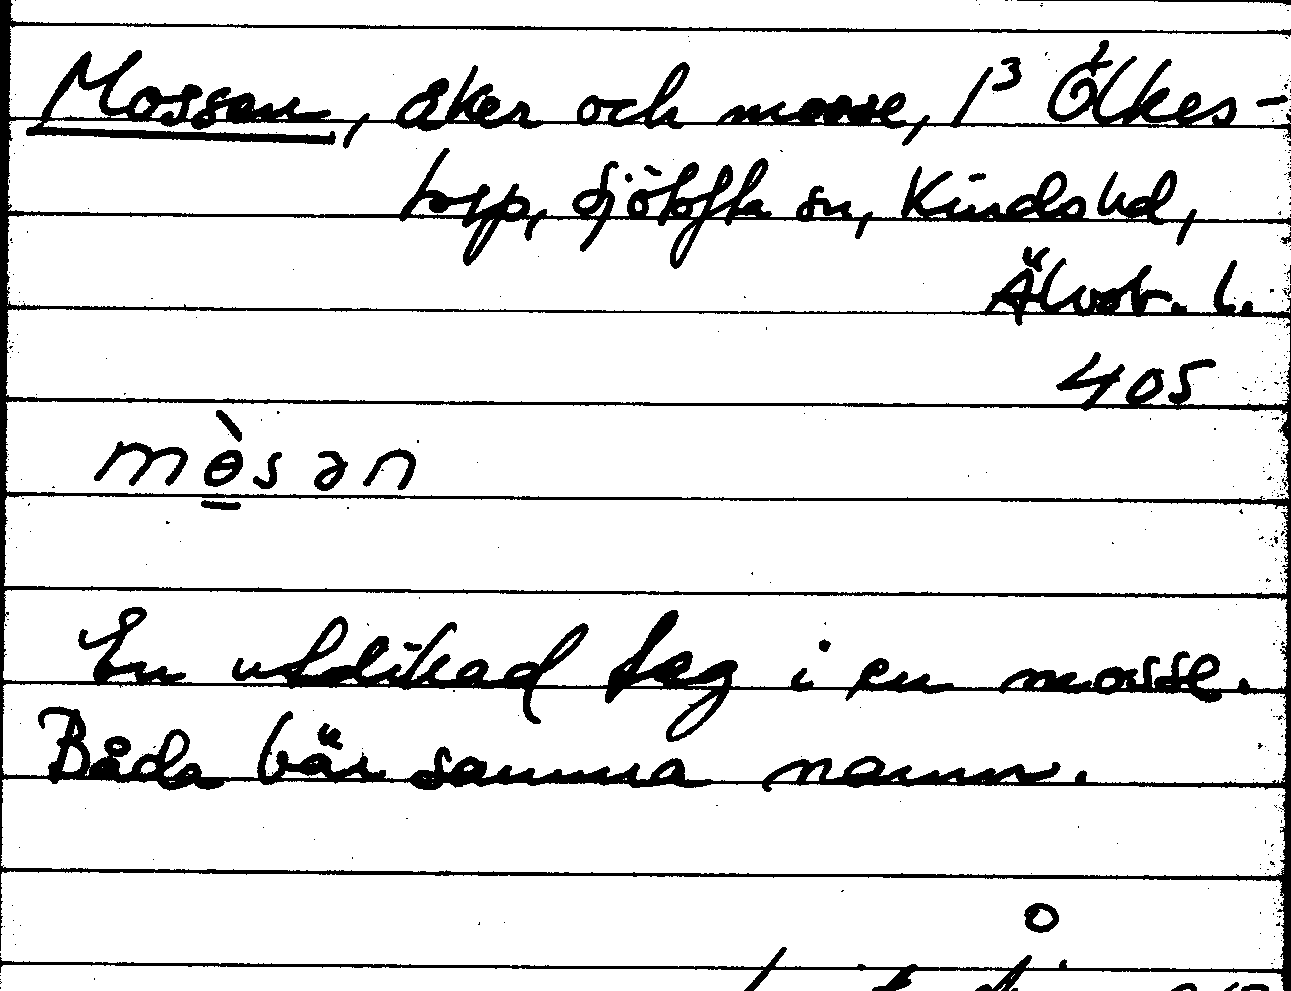 Mossen, åker och mosse, 1³ Ölkes-
torp, Sjötofta sn, Kinds hd,
Älvsb. l.
405
mòsən
En utdikad teg i en mosse.
Båda bär samma namn.